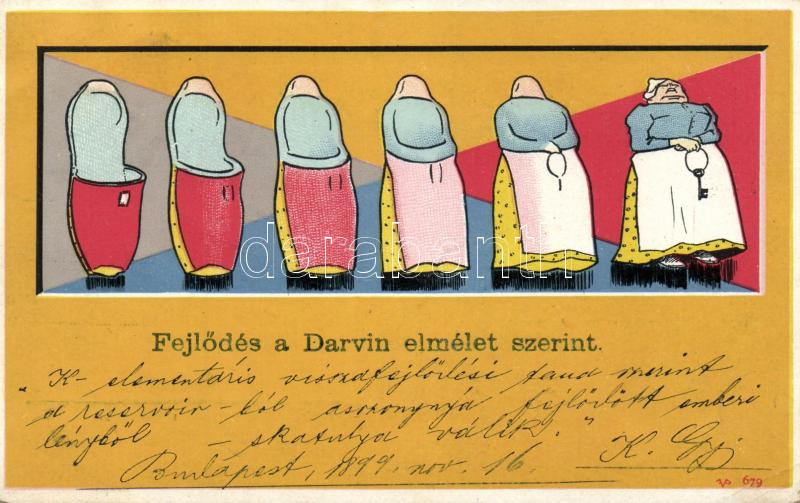 darabanth
Fejlődés a Darvin elmélet szerint.
"K- elementáris visszafejlődési taua merint
a reservoir-ból asszonynyá fejlődött emberi
lényből - skatulya válik."
K. Gy.
Budapest, 1899. nov. 16.
679